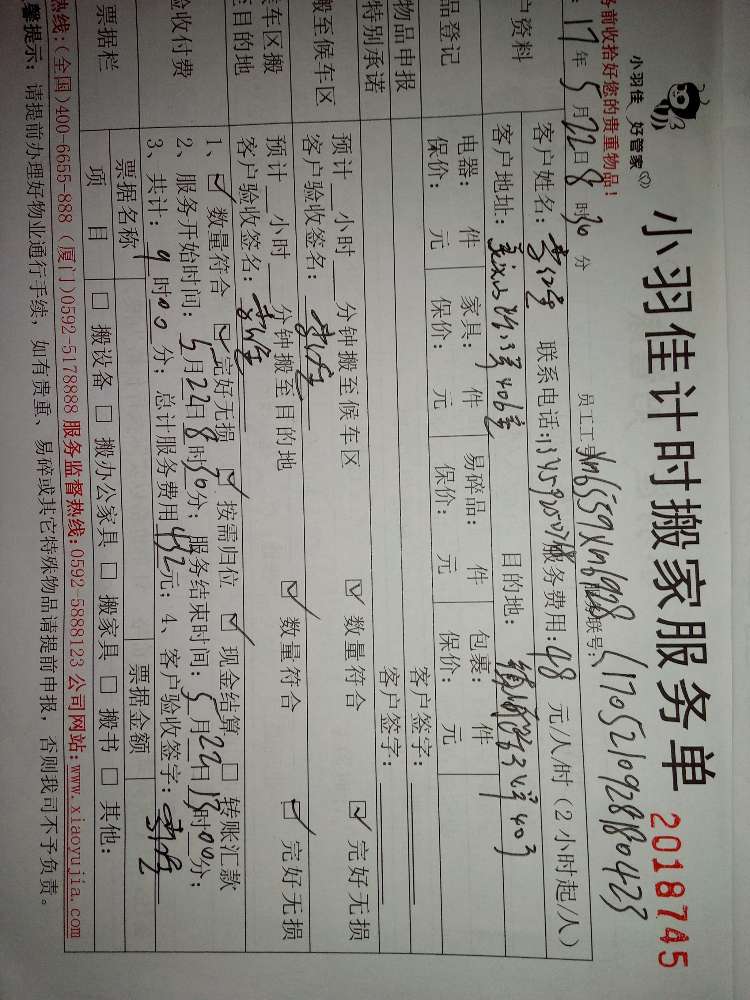 小羽佳 好管家
小羽佳计时搬家服务单
2018745
前收拾好您的贵重物品!
17年5月22日8时30分
员工工号
Xm6559Xm6928
联号:
客户资料
客户姓名:
联系电话:
服务费用:48 元/人/时(2小时起/人)
客户地址:
目的地:
品登记
电器: 件 家具: 件 易碎品: 件 包裹: 件
保价: 元 保价: 元 保价: 元 保价: 元
物品申报
客户签字:
特别承诺
客户签字:
搬至候车区
预计 小时 分钟搬至候车区 ☑ 数量符合 ☑ 完好无损
客户验收签名:
车区搬
至目的地
预计 小时 分钟搬至目的地 ☑ 数量符合 ☑ 完好无损
客户验收签名:
验收付费
1、☑ 数量符合 ☑ 完好无损 ☑ 按需归位 ☑ 现金结算 □ 转账汇款
2、服务开始时间:5月22日8时30分;服务结束时间:5月22日 时00分;
3、共计:9时00分;总计服务费用432元;4、客户验收签字:
票据栏
票据名称
票据金额
项 目
□ 搬设备 □ 搬办公家具 □ 搬家具 □ 搬书 □ 其他:
热线:(全国)400-6655-888 (厦门)0592-5178888 服务监督热线:0592-5888123 公司网站:www.xiaoyujia.com
馨提示:请提前办理好物业通行手续,如有贵重、易碎或其它特殊物品请提前申报,否则我司不予负责。